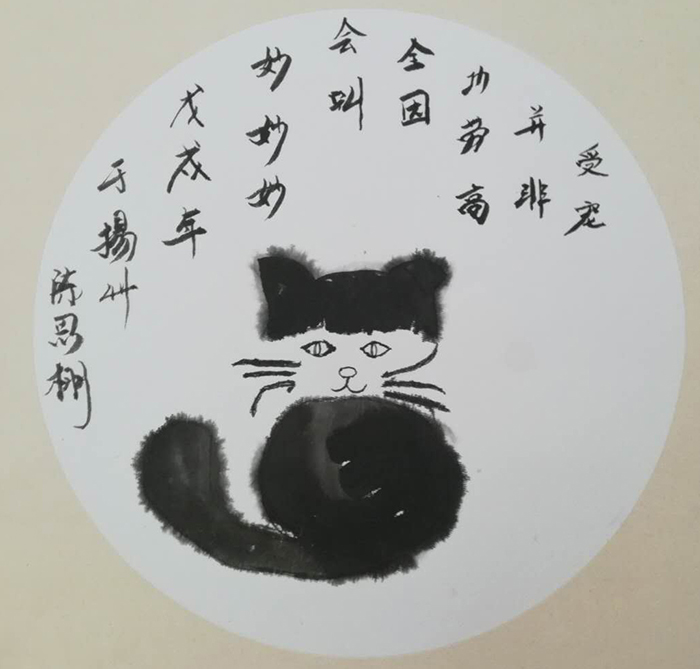 受宠
并非
功劳高
全因
会叫
妙妙妙
戊戌年
于揚州
陈思